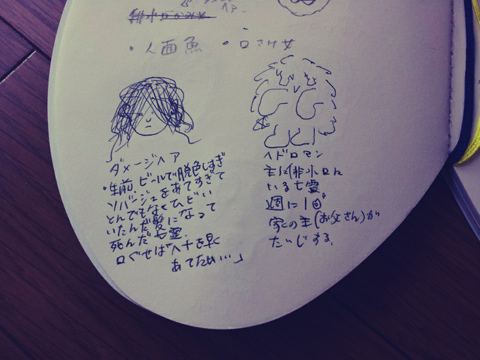 ・人面魚 ・口さけ女
ダメージヘア
・生前、ビールで脱色しすぎ
ソバージュをあてすぎて
とんでもなくひどい
いたんだ髪になって
死んだ亡霊
口ぐせは「ヘナを早く
あてたい…」
ヘドロマン
主に排水口に
いる亡霊。
週に1回
家の主(お父さん)が
たいじする.